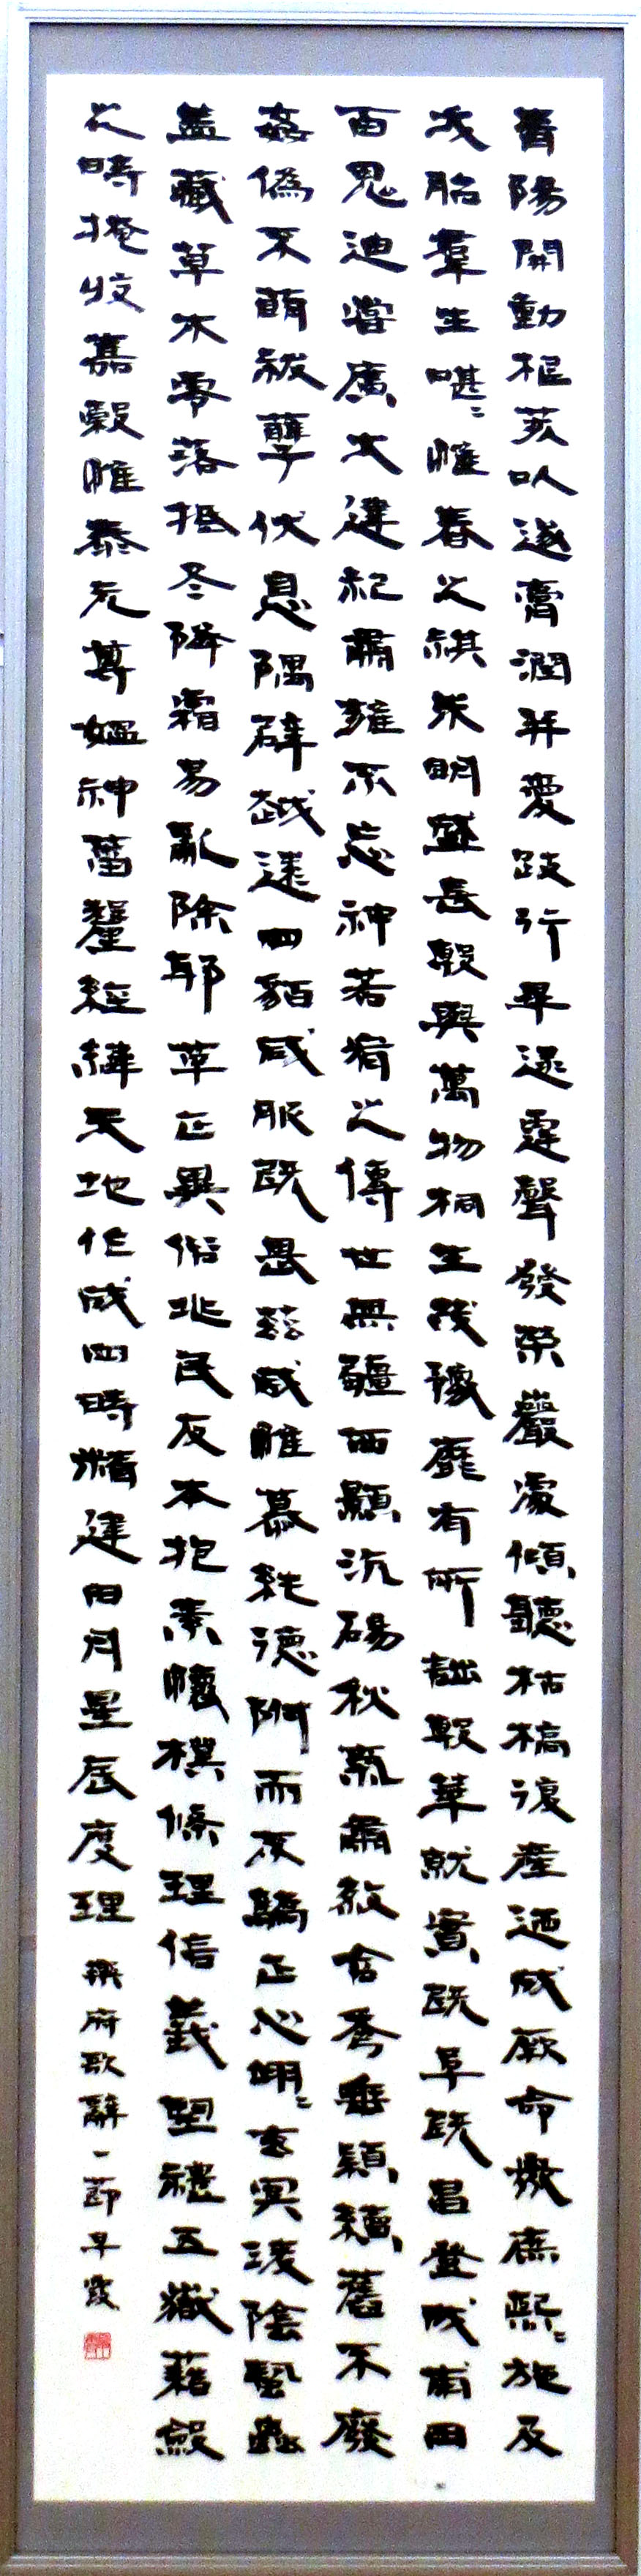 青陽開動根荄以遂膏潤并愛跂行畢逮霆聲發榮巖處傾聽枯槁復產迺成厥命衆庶熙〻施及
夭胎羣生啿〻惟春之祺朱明盛長敷與萬物桐生茂豫靡有所詘敷華就實既阜既昌登成甫田
百鬼迪嘗廣大建祀肅雍不忘神若宥之傳世無疆西顥沆碭秋氣肅殺含秀垂穎續舊不廢
姦僞不萌祅孽伏息隅辟越遠四貉咸服既畏茲威惟慕純德附而不驕正心翊〻玄冥陵陰蟄蟲
蓋藏草木零落抵冬降霜易亂除邪革正異俗兆民反本抱素懷樸條理信義望禮五嶽藉斂
之時掩收嘉穀惟泰元尊媼神蕃釐經緯天地作成四時精建日月星辰度理 樂府歌辭一節早霞